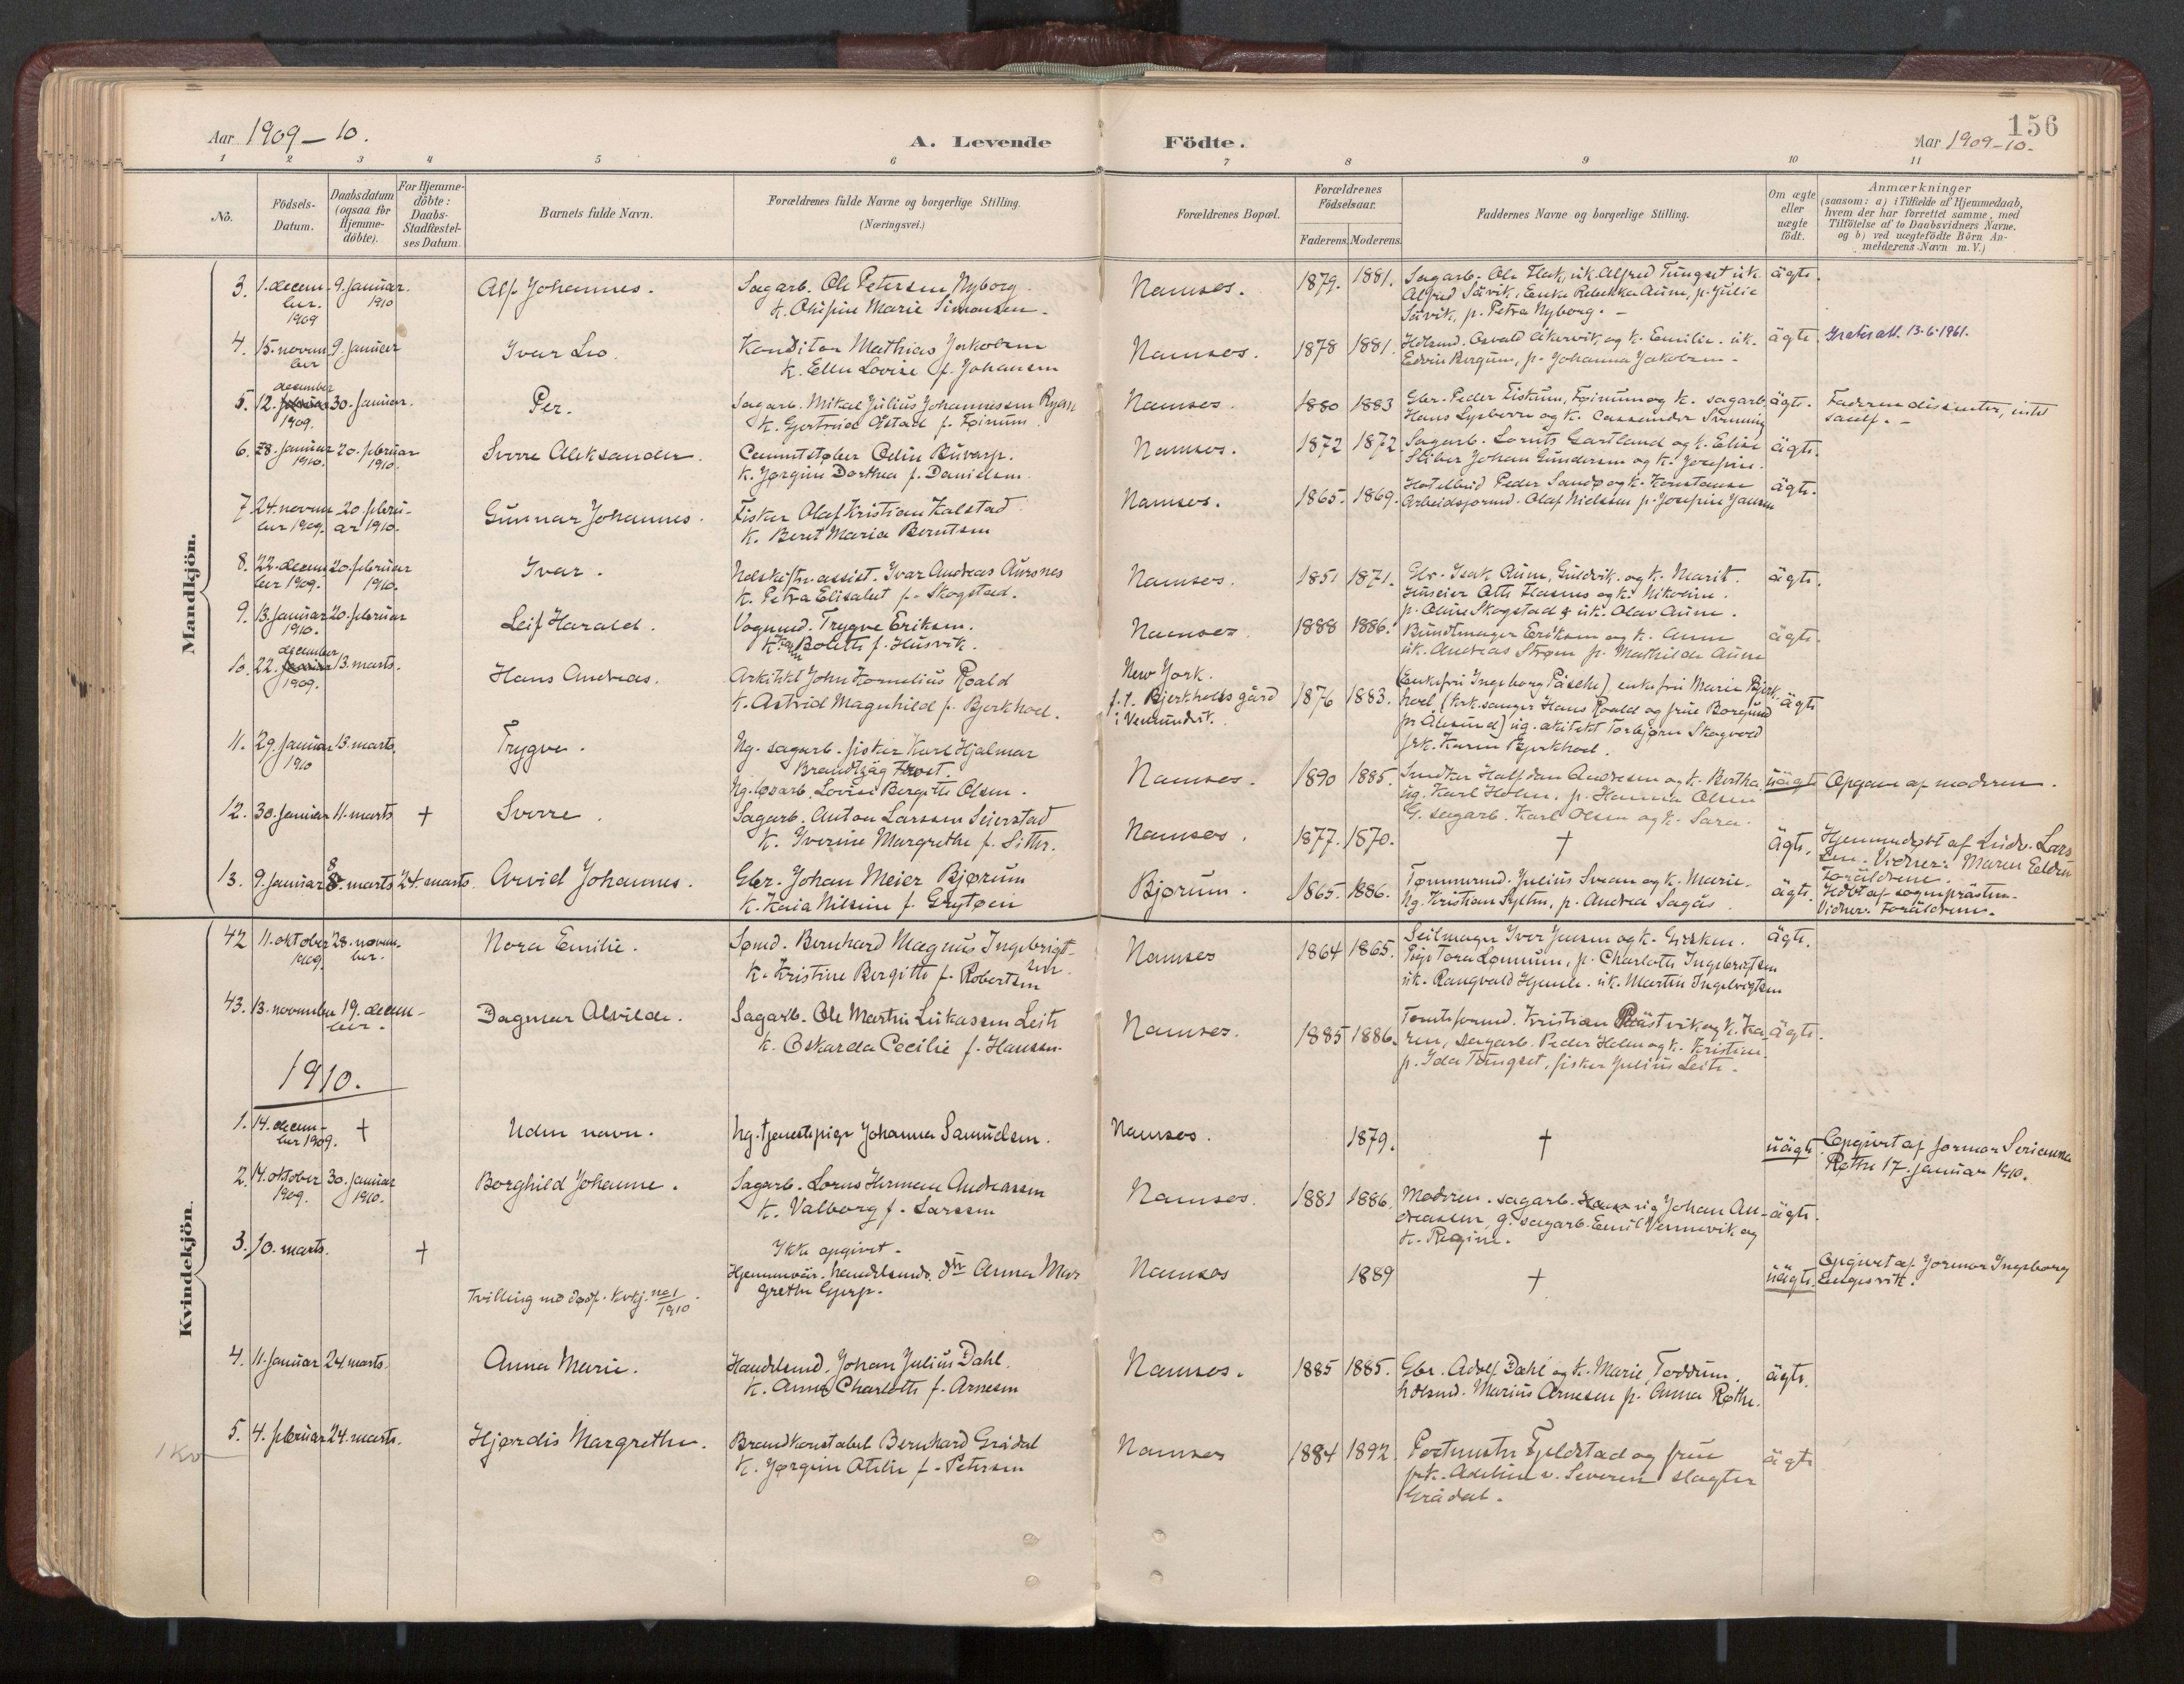 156
Aar 1909-10.
A. Levende Födte.
Aar 1909-10.
1 2 3 4 5 6 7 8 9 10 11
No.
Födsels-Datum.
Daabsdatum (ogsaa for Hjemme-döbte).
For Hjemme-döbte: Daabs-Stadfæstel-ses Datum.
Barnets fulde Navn.
Forældrenes fulde Navne og borgerlige Stilling. (Næringsvei.)
Forældrenes Bopæl.
Forældrenes Födselsaar.
Faderens. Moderens.
Faddernes Navne og borgerlige Stilling.
Om ægte eller uægte födt.
Anmærkninger
(saasom: a) i Tilfælde af Hjemmedaab,
hvem der har forrettet samme, med
Tilföielse af to Daabsvidners Navne,
og b) ved uægtefödte Börn An-
melderens Navn m. V.)
Mandkjön.
3. 1. decem-ber. 1909 9. januar. 1910 Alf Johannes. Sagarb. Ole Petersen Nyborg. K. Marie Simonsen. Namsos. 1879. 1881. Sagarb. Ole Flak, uk. Alfred Tungset uk.
Alfred Sävik, Enke Rebekka Aune, p. Julie
Sävik, p. Petra Nyborg. ägte.
4. 15. novem-ber 9. januar Ivar Leo. Konditor Mathias Jakobsen
K. Ellen Lovise f. Johansen Namsos. 1878 1881. Osvald Akervik og K. Emilie. uk.
Edvin Bergum, p. Johanna Jakobsen. ägte. Gratis att. 13.6.1961.
5. 12. december 1909. 30. januar. Per. Sagarb. Mikal Julius Johannessen Ryan
K. Gertrud Åstad f. Føinum. Namsos. 1880 1883 Gbr. Peder Fiskum, Føinum og K. sagarb.
Hans og K. ägte. Faderen dissenter, intet
samf.
6. 28. januar 1910. 20. februar 1910. Sverre Aleksander. Cementstøber Odin Buvarp.
K. Jørgine Dorthea f. Danielsen Namsos. 1872 1872. Sagarb. Lorents Gartland og K. Eline
Johan Gundersen og K. Josefine. ägte.
7. 24. novem-ber 1909. 20. febru-ar 1910. Gunnar Johannes. Fisker Olaf Kristian Kalstad
K. Beret Maria Berntsen Namsos. 1865. 1869. Peder Sandø og K. Konstance
Arbeidsformd. Olaf Nielsen p. Josefine Jansen ägte.
8. 22. decem-ber 1909. 20. februar 1910. Ivar. assist. Ivar Andreas Aursnes
K. Petra Elisabet f. Skogstad. Namsos. 1851 1871. Gbr. Isak Aune, Guldvik. og K. Marit.
Huseier Otto Hasnes og K. Nikoline.
p. Oline Skogstad & uk. Olav Aune. ägte.
9. 13. januar 1910. 20. februar Leif Harald. Vognmd. Trygve Eriksen.
K. Karen Bolette f. Husvik. Namsos. 1888 1886. Bundtmager Eriksen og K. Anne
uk. Andreas Strøm p. Mathilde Aune ägte.
10. 22. december 1909. 13. marts. Hans Andreas. Arkitekt John Kornelius Roald
K. Astrid Magnhild f. Bjerkhoel. New York.
f.t. Bjerkhoels gård
i Vemundvik. 1876 1883. (Enkefru Ingeborg Påsche) enkefru Marie Bjerk-
hoel (kirk.sanger Hans Roald og frue Borgund
pr Ålesund) ug. arkitekt Torbjørn Skogvold
frk. Karen Bjerkhoel. ägte
11. 29. januar 1910 13. marts. Trygve. Ug. sagarb. fisker Karl Hjalmar
Brandtzäg Frost.
Ug. løsarb. Lovise Bergitte Olsen. Namsos. 1890 1885. Snedker Halfdan Andresen og K. Bertha.
ug. Karl Holm. p. Hanna Olsen
G. sagarb. Karl Olsen og K. Sara. uägte Opgave af moderen.
12. 30. januar 11. marts † Sverre. Sagarb. Anton Larssen Seierstad
K. Iverine Margrethe f. Sitter. Namsos. 1877. 1870. † ägte. Hjemmedøbt af Ludv. Lars
sen. Vidner: Maren Eldru
Foräldrene.
13. 9. januar 8. marts 24. marts. Arvid Johannes. Gbr. Johan Meier Bjørum
K. Kaia Nilsine f. Grytøen Bjørum. 1865. 1886. Tømmermd. Julius Svean og K. Marie.
Ug. Kristian p. Andrea Sagås. ägte. Hdbt af sogneprästen.
Vidner: Foräldrene.
Kvindekjön.
42 11. oktober 1909. 28. novem-ber. Nora Emilie. Sømd. Bernhard Magnus Ingebrigt-
sen.
K. Kristine Bergitte f. Robertsen Namsos 1864 1865. Seilmager Iver Jensen og K. Gisken.
Pige Tora Lønnum, p. Charlotte Ingebrigtsen
uk. Rangvald Hjemle. uk. Martin Ingebrigtsen ägte.
43. 13. november 19. decem-ber. Dagmar Alvilde. Sagarb. Ole Martin Lukassen Leite
K. Oskarda Cecilie f. Hansen. Namsos. 1885 1886. Kristian Råstvik og K. Ka-
ren, sagarb. Peder Holm og K. Kristine.
p. Ida Tungset, fisker Julius Leite. ägte.
1910.
1. 14. decem-ber 1909. † Uden navn. Ug. tjenestepige Johanna Samuelsen. Namsos. 1879. † uägte. Opgivet af jormor Serianna
Røthe 17. januar 1910.
2. 14. oktober 1909. 30. januar 1910. Borghild Johanne. Sagarb. Lorns Herman Andreassen
K. Valborg f. Larssen Namsos. 1881 1886. Moderen. sagarb. ug Johan An-
dreassen, g. sagarb. Emil Vennevik og
K. Regine. ägte.
3. 10. marts. † Tvilling med dødf. kvkj. no 1/1910. Ikke opgivet.
Hjemmevär. handelsmds. dtr Anna Mar
grethe Gjerp. Namsos 1889 † uägte. Opgivet af jormor Ingeborg
Engesvik.
4. 11. januar 24. marts. Anna Marie. Handelsmd. Johan Julius Dahl.
K. Anna Charlotte f. Arnesen Namsos. 1885 1885. Gbr. Adolf Dahl og K. Marie, Foddum.
hdlsmd. Marius Arnesen p. Anna Røthe. ägte.
5. 4. februar 24. marts. Hjørdis Margrethe. Brandkonstabel Bernhard Grådal
K. Jørgine Otelie f. Petersen Namsos 1884 1892. Postmstr. Fjeldstad og frue
frk. Adeline v. Severen slagter
Grådal. ägte
1 Kv